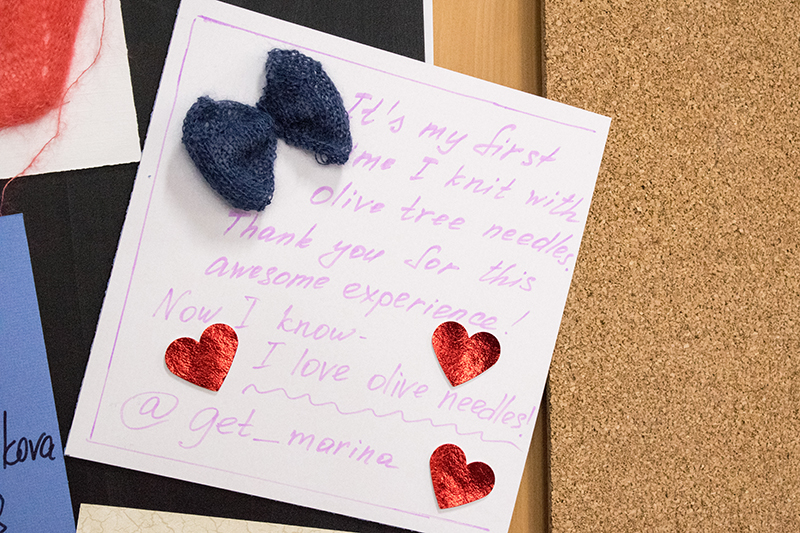 It's my first
time I knit with
olive tree needles.
Thank you for this
awesome experience!
Now I know-
I love olive needles!
@get_marina
kova